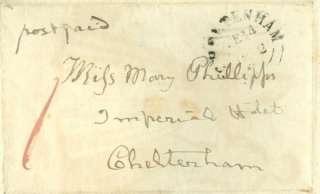 postpaid
Miss Mary Phillipps
Imperial Hotel
Cheltenham